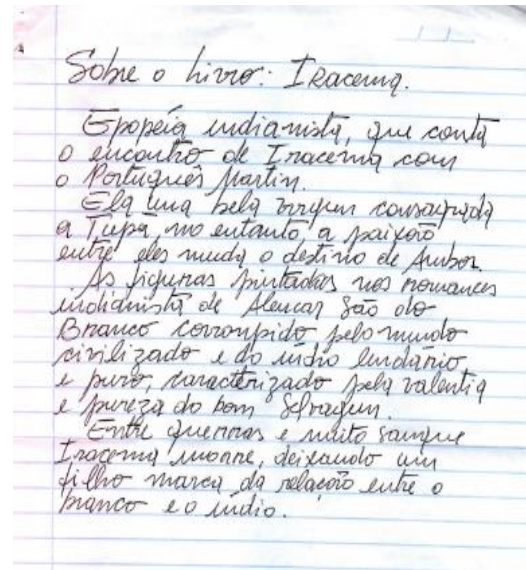 Sobre o Livro: Iracema.
Epopéia indianista, que conta
o encontro de Iracema com
o Português Martin.
Ela uma bela virgem consagrada
a Tupã, no entanto a paixão
entre eles muda o destino de Ambos.
As figuras pintadas nos romances
indianista de Alencar são do
Branco corrompido pelo mundo
civilizado e do índio lendário
e puro, caracterizado pela valentia
e pureza do bom Selvagem.
Entre guerras e muito sangue
Iracema morre, deixando um
filho marca da relação entre o
branco e o índio.